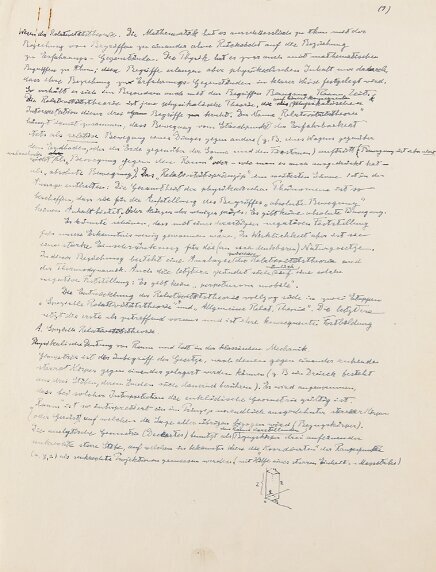 (1)
Wesen der Relativitätstheorie. Die Mathematik hat es ausschliesslich zu thun mit der
Beziehung von Begriffen zu einander ohne Rücksicht auf die Beziehung
zu Erfahrungs-Gegenständen. Die Physik hat es zwar auch mit mathematischen
Begriffen zu thun; diese Begriffe erlangen aber physikalischen Inhalt nur dadurch
dass ihre Beziehung zu Erfahrungs-Gegenständen in klarer Weise festgelegt werden.
So verhält es sich im Besonderen auch mit den Begriffen Bewegung, Raum, Zeit.
Die Relativitätstheorie ist jene physikalische Theorie, die physikalischen
Interpretation dieser drei Begriffe beruht. Der Name "Relativitätstheorie"
hängt damit zusammen, dass Bewegung vom Standpunkt der Erfahrbarkeit
stets als relative Bewegung eines Dinges gegen andere (z. B. eines Wagens gegenüber
dem Erdboden, oder der Erde gegenüber der Sonne und den Fixsternen) auftritt (Bewegung ist aber nicht
als "Bewegung gegen den Raum" oder - wie man es auch ausgedrückt hat -
als "absolute Bewegung"). Das "Relativitätsprinzip" im weitesten Sinne ist in der
Aussage enthalten: Die Gesamtheit der physikalischen Phänomene ist so
beschaffen, dass sie für die Einführung des Begriffes "absolute Bewegung"
keinen Anhalt bietet. Oder kürzer aber weniger präzis: Es gibt keine absolute Bewegung.
Es könnte scheinen, dass mit einer derartigen negativen Feststellung
für unsere Erkenntnis wenig gewonnen wäre. In Wirklichkeit aber ist sie
eine starke Einschränkung für die Naturgesetze.
In dieser Beziehung besteht eine Analogie zwischen Relativitätstheorie und
der Thermodynamik. Auch die letztere gründet sich auf eine solche
negative Feststellung: "Es gibt kein perpetuum mobile".
Die Entwicklung der Relativitätstheorie vollzog sich in zwei Etappen
"Spezielle Relativitätstheorie" und "Allgemeine Relat. Theorie". Die letztere
setzt die erste als zutreffend voraus und ist ihre konsequente Fortbildung
A. Spezielle Relativitätstheorie
Physikalische Deutung von Raum und Zeit in der klassischen Mechanik
Geometrie ist der Inbegriff der Gesetze, nach denen gegen einander ruhende
starre Körper gegen einander gelagert werden können (z. B. ein Dreieck besteht
aus drei Stäben, deren Enden sich dauernd berühren). Es wird angenommen,
dass bei solcher Interpretation die euklidische Geometrie gültig ist.
Raum ist in Interpretation ein im Prinzip unendlich ausgedehnter starrer Körper
(oder Gerüst) auf welchen die Lage aller übrigen bezogen wird (Bezugskörper).
Die analytische Geometrie (Descartes) benutzt als Bezugskörper drei auf einander
senkrechte starre Stäbe, auf welchen die Koordinaten der Raumpunkte
(x, y, z) als senkrechte Projektionen gemessen werden (mit Hilfe eines starren Einheits-Massstabes)